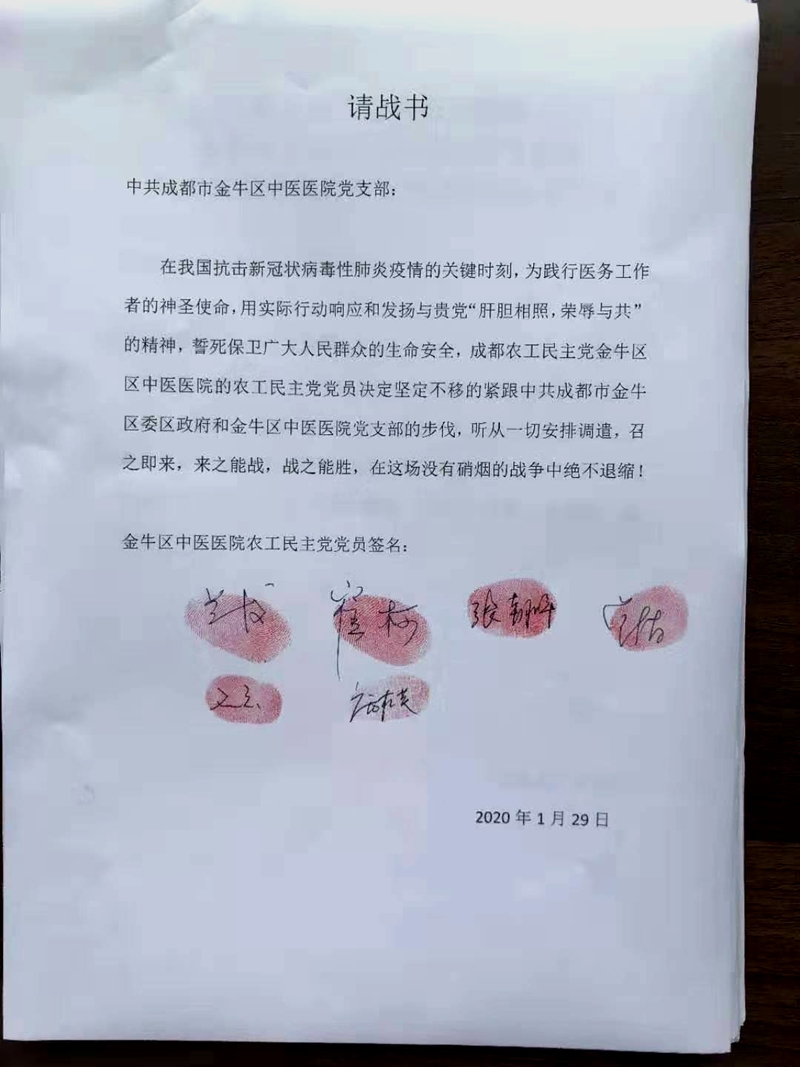 请战书
中共成都市金牛区中医医院党支部：
在我国抗击新冠状病毒性肺炎疫情的关键时刻，为践行医务工作
者的神圣使命，用实际行动响应和发扬与贵党“肝胆相照，荣辱与共”
的精神，誓死保卫广大人民群众的生命安全，成都农工民主党金牛区
区中医医院的农工民主党党员决定坚定不移的紧跟中共成都市金牛
区委区政府和金牛区中医医院党支部的步伐，听从一切安排调遣，召
之即来，来之能战，战之能胜，在这场没有硝烟的战争中绝不退缩！
金牛区中医医院农工民主党党员签名：
2020 年 1 月 29 日